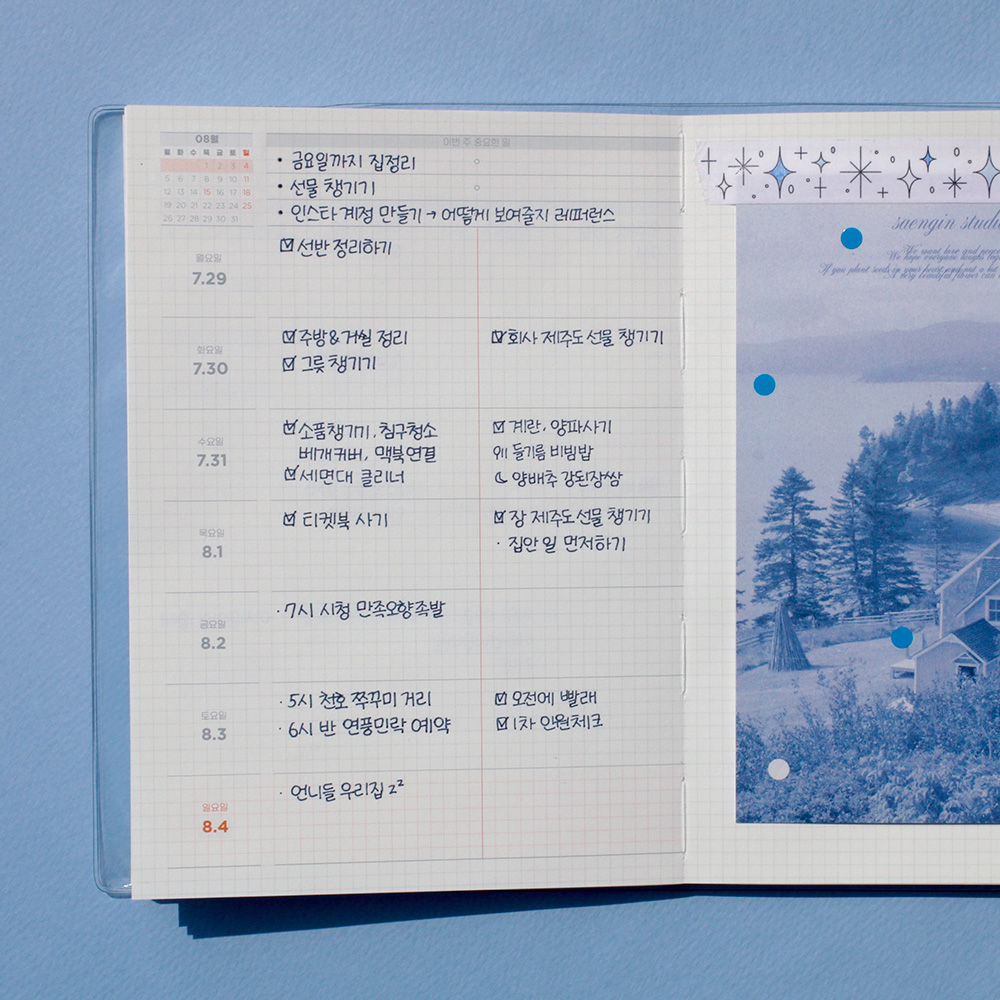 08월
월 화 수 목 금 토 일
1 2 3 4
5 6 7 8 9 10 11
12 13 14 15 16 17 18
19 20 21 22 23 24 25
26 27 28 29 30 31
이번 주 중요한 일
• 금요일까지 집정리
• 선물 챙기기
• 인스타 계정 만들기 → 어떻게 보여줄지 레퍼런스
월요일
7.29
☑ 선반 정리하기
화요일
7.30
☑ 주방&거실 정리
☑ 그릇 챙기기
☑ 회사 제주도 선물 챙기기
수요일
7.31
☑ 소품챙기기, 침구청소
베개커버, 맥북연결
☑ 세면대 클리너
☑ 계란, 양파사기
들기름 비빔밥
☾ 양배추 강된장쌈
목요일
8.1
☑ 티켓북 사기
☑ 장 제주도 선물 챙기기
· 집안일 먼저하기
금요일
8.2
· 7시 시청 만족오향족발
토요일
8.3
· 5시 천호 쭈꾸미 거리
· 6시 반 연풍민락 예약
☑ 오전에 빨래
☑ 1차 인원체크
일요일
8.4
· 언니들 우리집 2²
saengin studi
We want love and peace
We hope everyone laughs
If you plant seeds on your heart, and not a bit
A very beautiful flower can